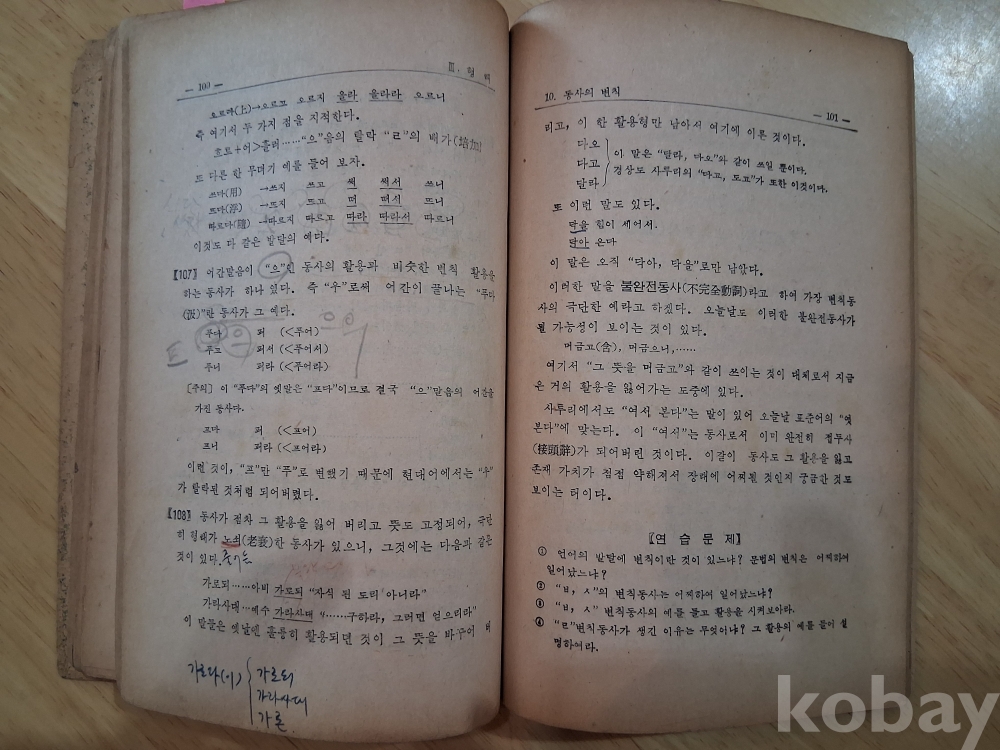 — 100 —
Ⅲ. 형 태
오르다(上)→오르고 오르지 올라 올라라 오르니
즉 여기서 두 가지 점을 지적한다.
흐르+어>흘러……"으"음의 탈락 "ㄹ"의 배가(培加)
또 다른 한 무더기 예를 들어 보자.
쓰다(用) →쓰지 쓰고 써 써서 쓰니
뜨다(浮) →뜨지 뜨고 떠 떠서 뜨니
따르다(隨) →따르지 따르고 따라 따라서 따르니
이것도 다 같은 발달의 예다.
【107】 어간말음이 "으"인 동사의 활용과 비슷한 변칙 활용을
하는 동사가 하나 있다. 즉 "우"로써 어간이 끝나는 "푸다
(汲)"란 동사가 그 예다.
푸다 퍼 (<푸어)
푸고 퍼서 (<푸어서)
푸니 퍼라 (<푸어라)
트 으 으어
[주의] 이 "푸다"의 옛말은 "프다"이므로 결국 "으"말음의 어간을
가진 동사다.
프다 퍼 (<프어)
프니 퍼라 (<프어라)
이런 것이, "프"만 "푸"로 변했기 때문에 현대어에서는 "우"
가 탈락된 것처럼 되어버렸다.
【108】 동사가 점차 그 활용을 잃어 버리고 뜻도 고정되어, 극단
히 형태가 노쇠(老衰)한 동사가 있으니, 그것에는 다음과 같은
것이 있다.
가로되……아비 가로되 "자식 된 도리 아니라"
가라사대…예수 가라사대 "……구하라, 그러면 얻으리라"
이 말들은 옛날엔 훌륭히 활용되던 것이 그 뜻을 바꾸어 버
가로다(이) 가로되
가라사대
가론
10. 동사의 변칙
— 101 —
리고, 이 한 활용형만 남아서 여기에 이른 것이다.
다오
다고 이 말은 "달라, 다오"와 같이 쓰일 뿐이다.
달라 경상도 사투리의 "다고, 도고"가 또한 이것이다.
또 이런 말도 있다.
닥을 힘이 세어서.
닥아 온다
이 말은 오직 "닥아, 닥을"로만 남았다.
이러한 말을 불완전동사(不完全動詞)라고 하여 가장 변칙동
사의 극단한 예라고 하겠다. 오늘날도 이러한 불완전동사가
될 가능성이 보이는 것이 있다.
머금고(含), 머금으니,……
여기서 "그 뜻을 머금고"와 같이 쓰이는 것이 대체로서 지금
은 거의 활용을 잃어가는 도중에 있다.
사투리에서도 "여서 본다"는 말이 있어 오늘날 표준어의 "엿
본다"에 맞는다. 이 "여서"는 동사로서 이미 완전히 접두사
(接頭辭)가 되어버린 것이다. 이같이 동사도 그 활용을 잃고
존재 가치가 점점 약해져서 장래에 어찌될 것인지 궁금한 것도
보이는 터이다.
【연 습 문 제】
① 언어의 발달에 변칙이란 것이 있느냐? 문법의 변칙은 어찌하여
일어났느냐?
② "ㅂ, ㅅ"의 변칙동사는 어찌하여 일어났느냐?
③ "ㅂ, ㅅ" 변칙동사의 예를 들고 활용을 시켜보아라.
④ "ㄹ"변칙동사가 생긴 이유는 무엇이냐? 그 활용의 예를 들어 설
명하여라.
kobay